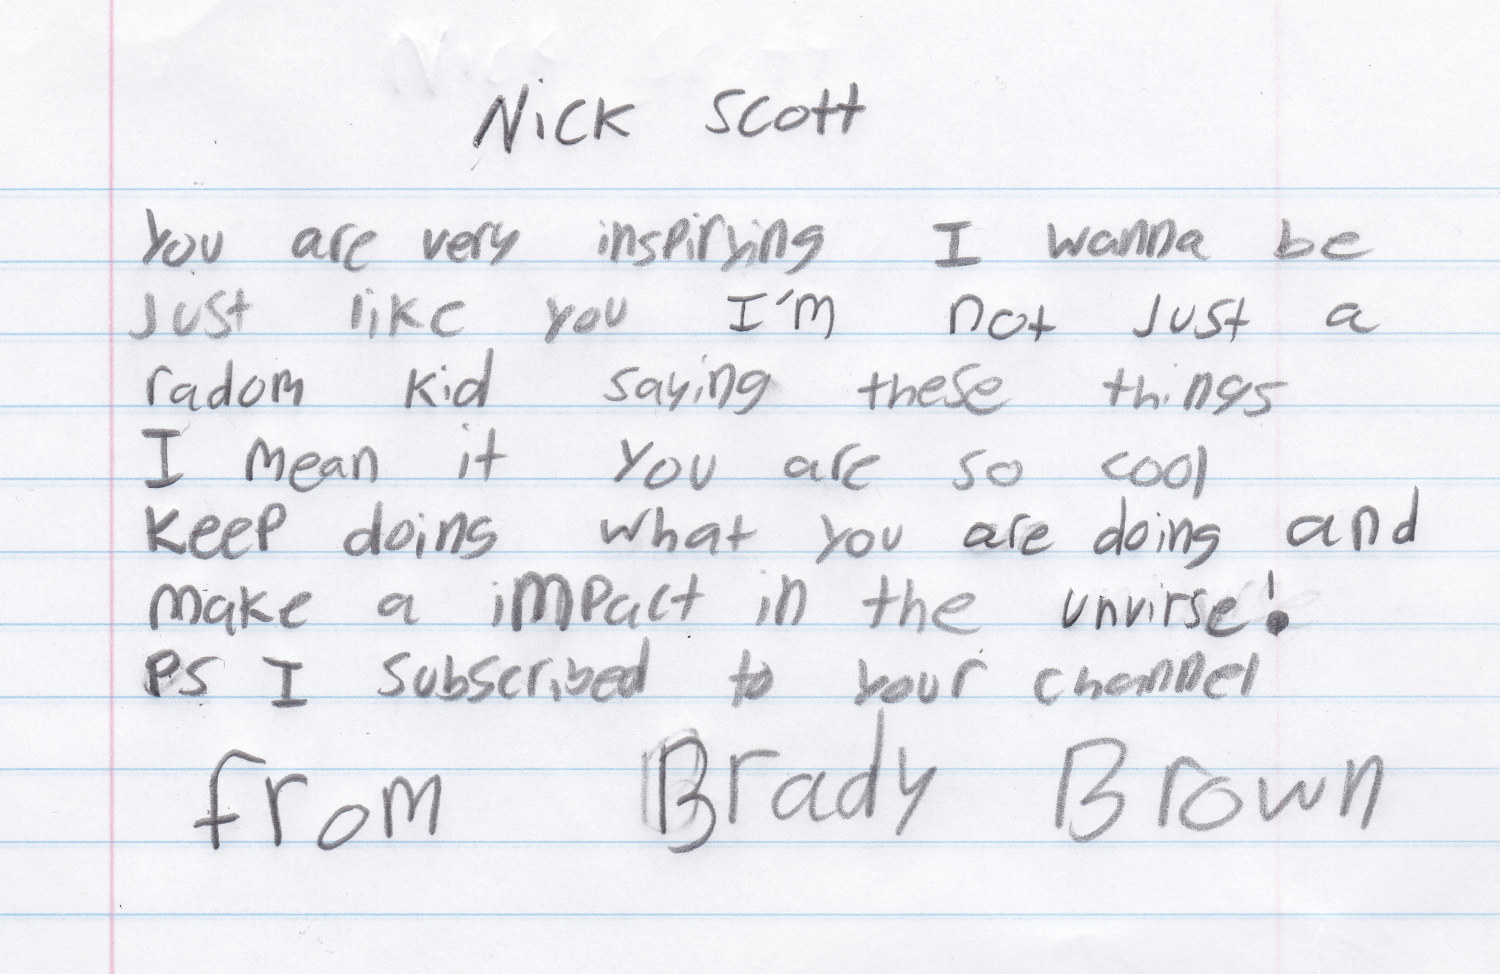 Nick Scott
You are very inspirying I wanna be
Just like you I'm not Just a
radom kid saying these things
I mean it you are so cool
Keep doing what you are doing and
make a impact in the unvirse!
PS I subscribed to your channel
from Brady Brown